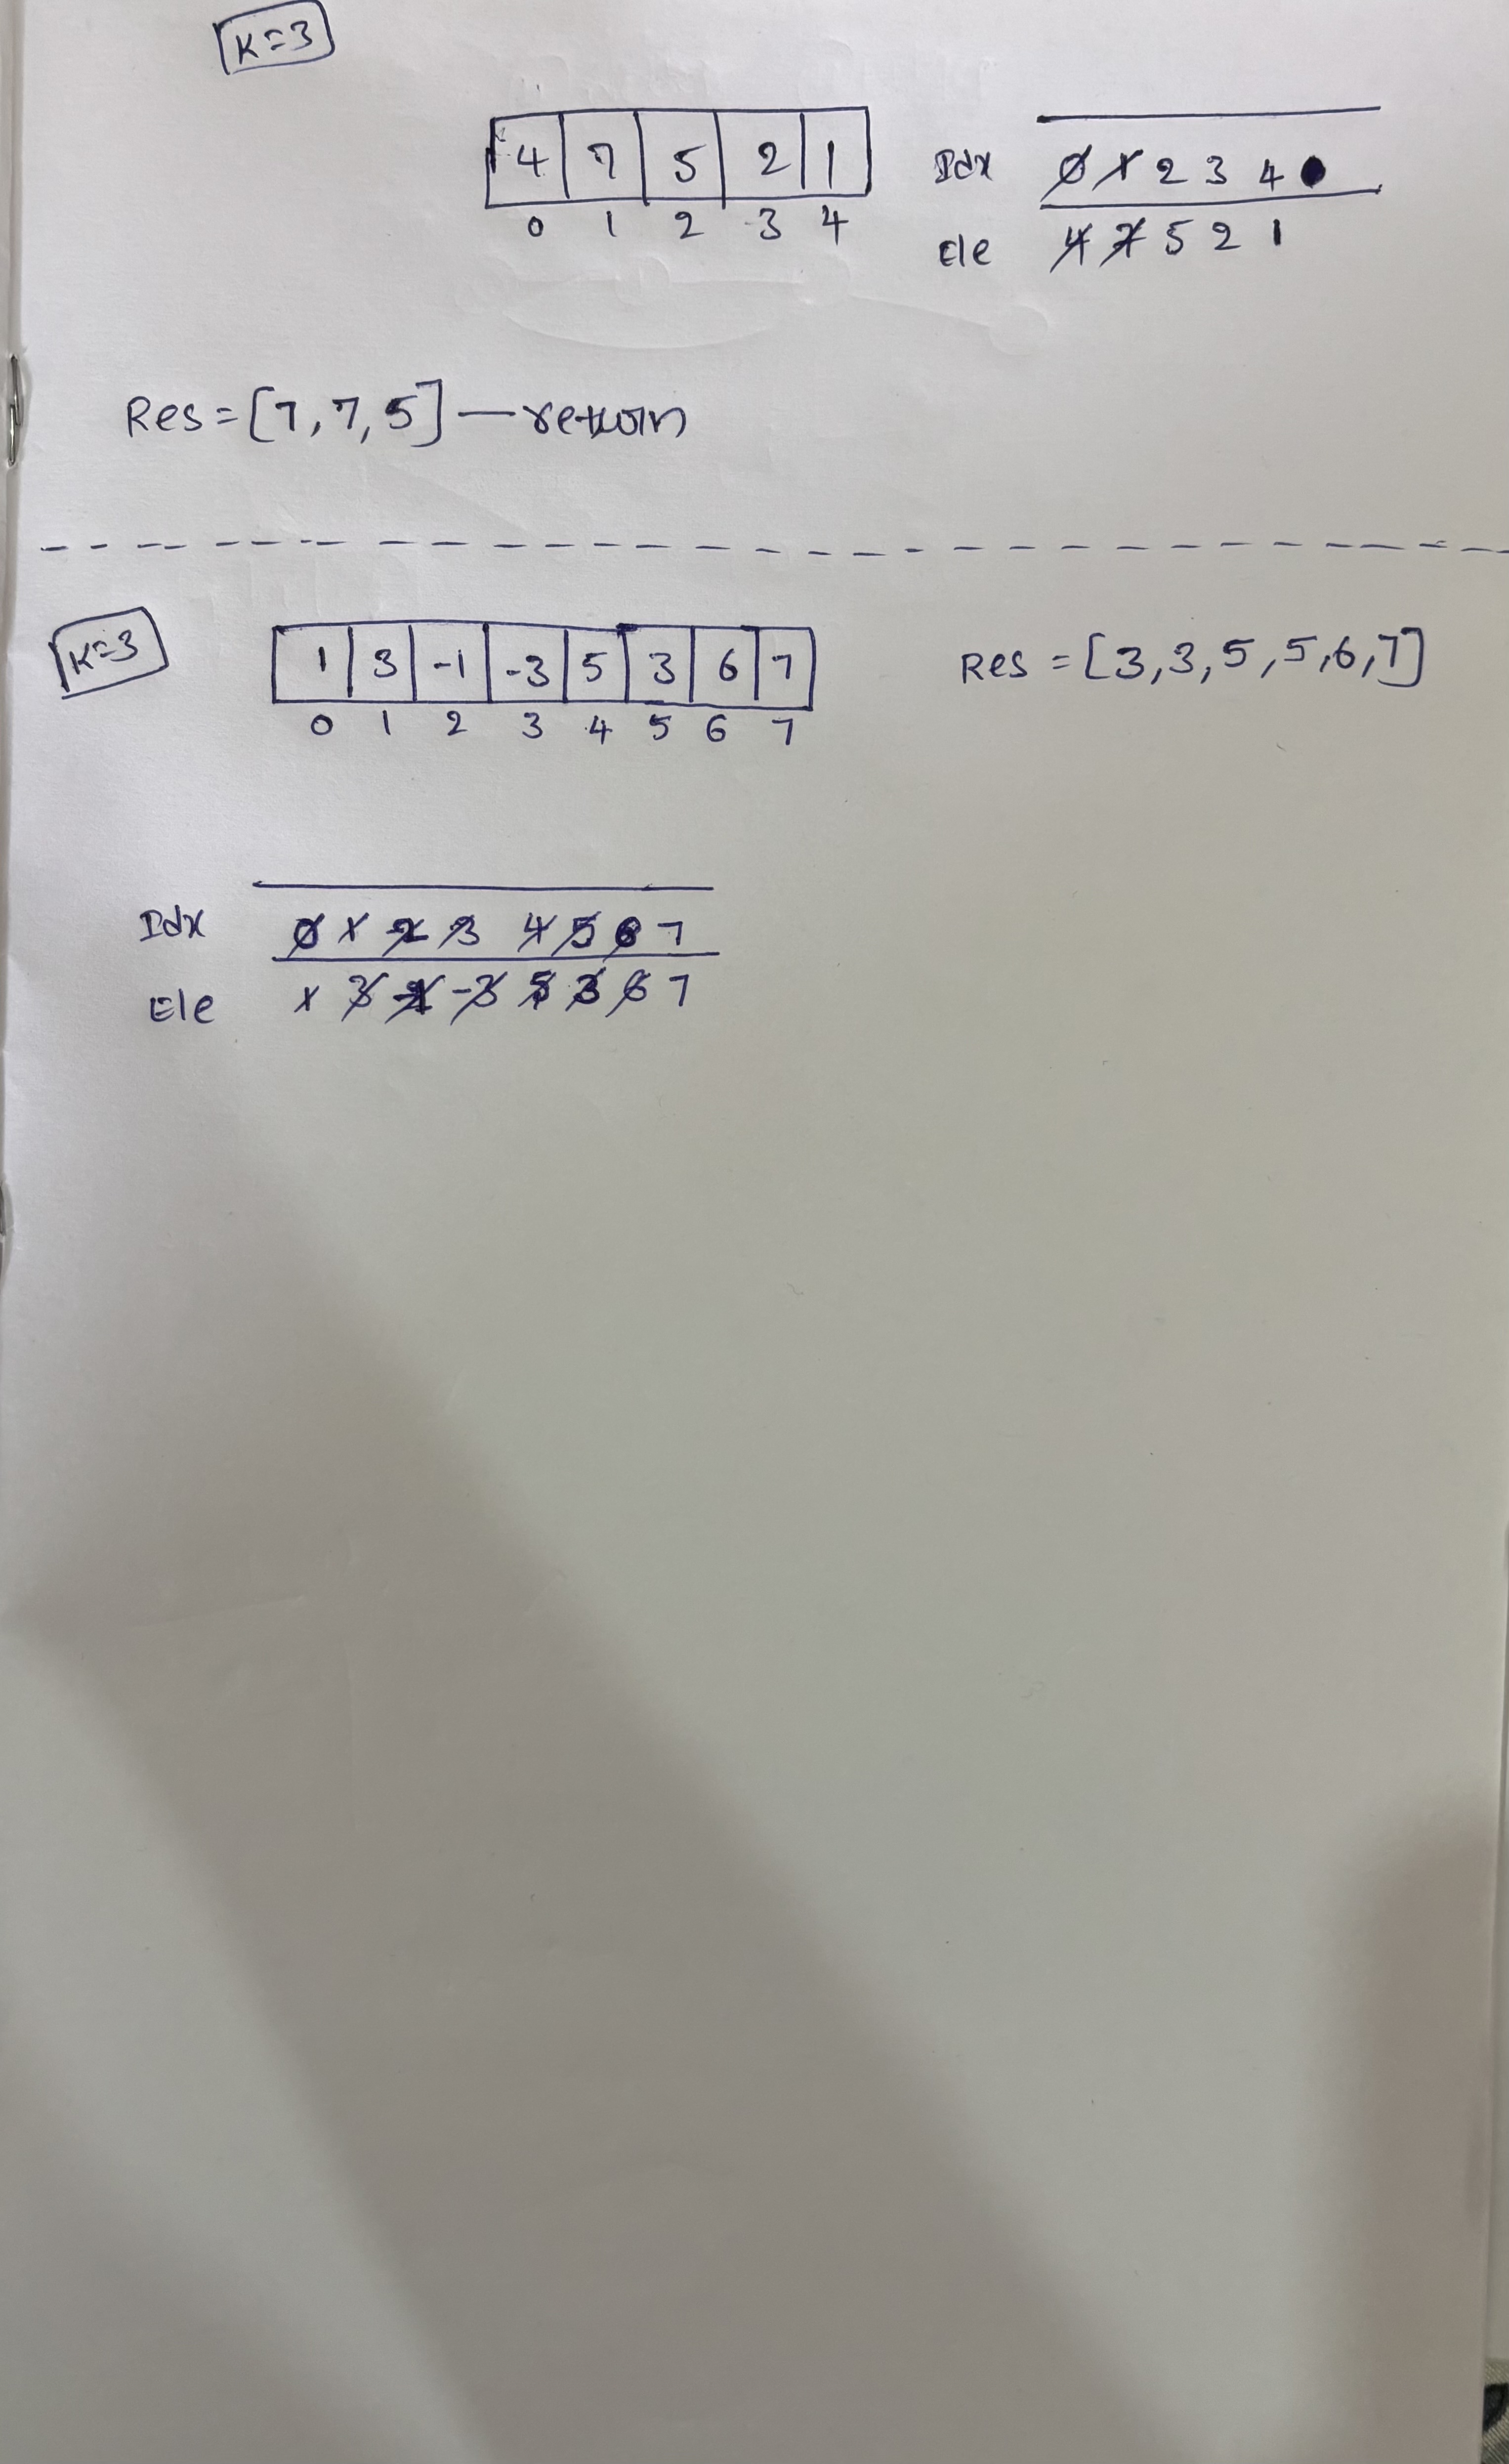 K=3
4 7 5 2 1
0 1 2 3 4
Idx 0 1 2 3 4
Ele 4 7 5 2 1
Res = [7, 7, 5] — return
K=3
1 3 -1 -3 5 3 6 7
0 1 2 3 4 5 6 7
Res = [3,3,5,5,6,7]
Idx 0 1 2 3 4 5 6 7
Ele 1 3 -1 -3 5 3 6 7